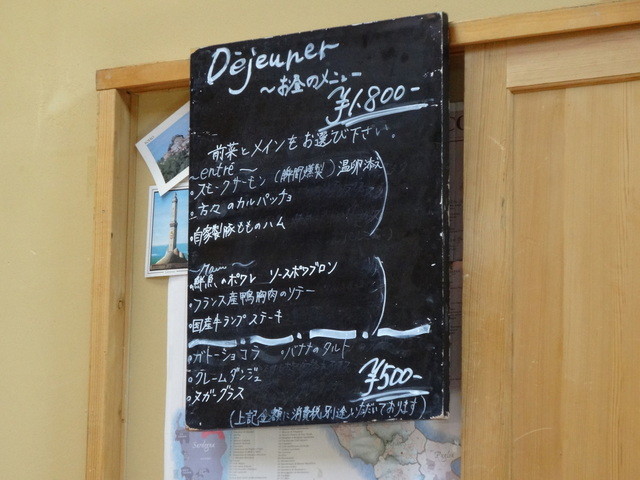 Déjeuner
〜お昼のメニュー
¥1.800-
前菜とメインをお選び下さい。
〜entré〜
・スモークサーモン(瞬間燻製)温卵添え
のカルパッチョ
・自家製豚もものハム
・鮮魚のポワレ ソースポワブロン
・フランス産鴨胸肉のソテー
・国産牛ランプステーキ
・ガトーショコラ ・バナナのタルト
・クレームダンジュ
・ヌガーグラス
¥500-
(上記金額に消費税別途いただいております)